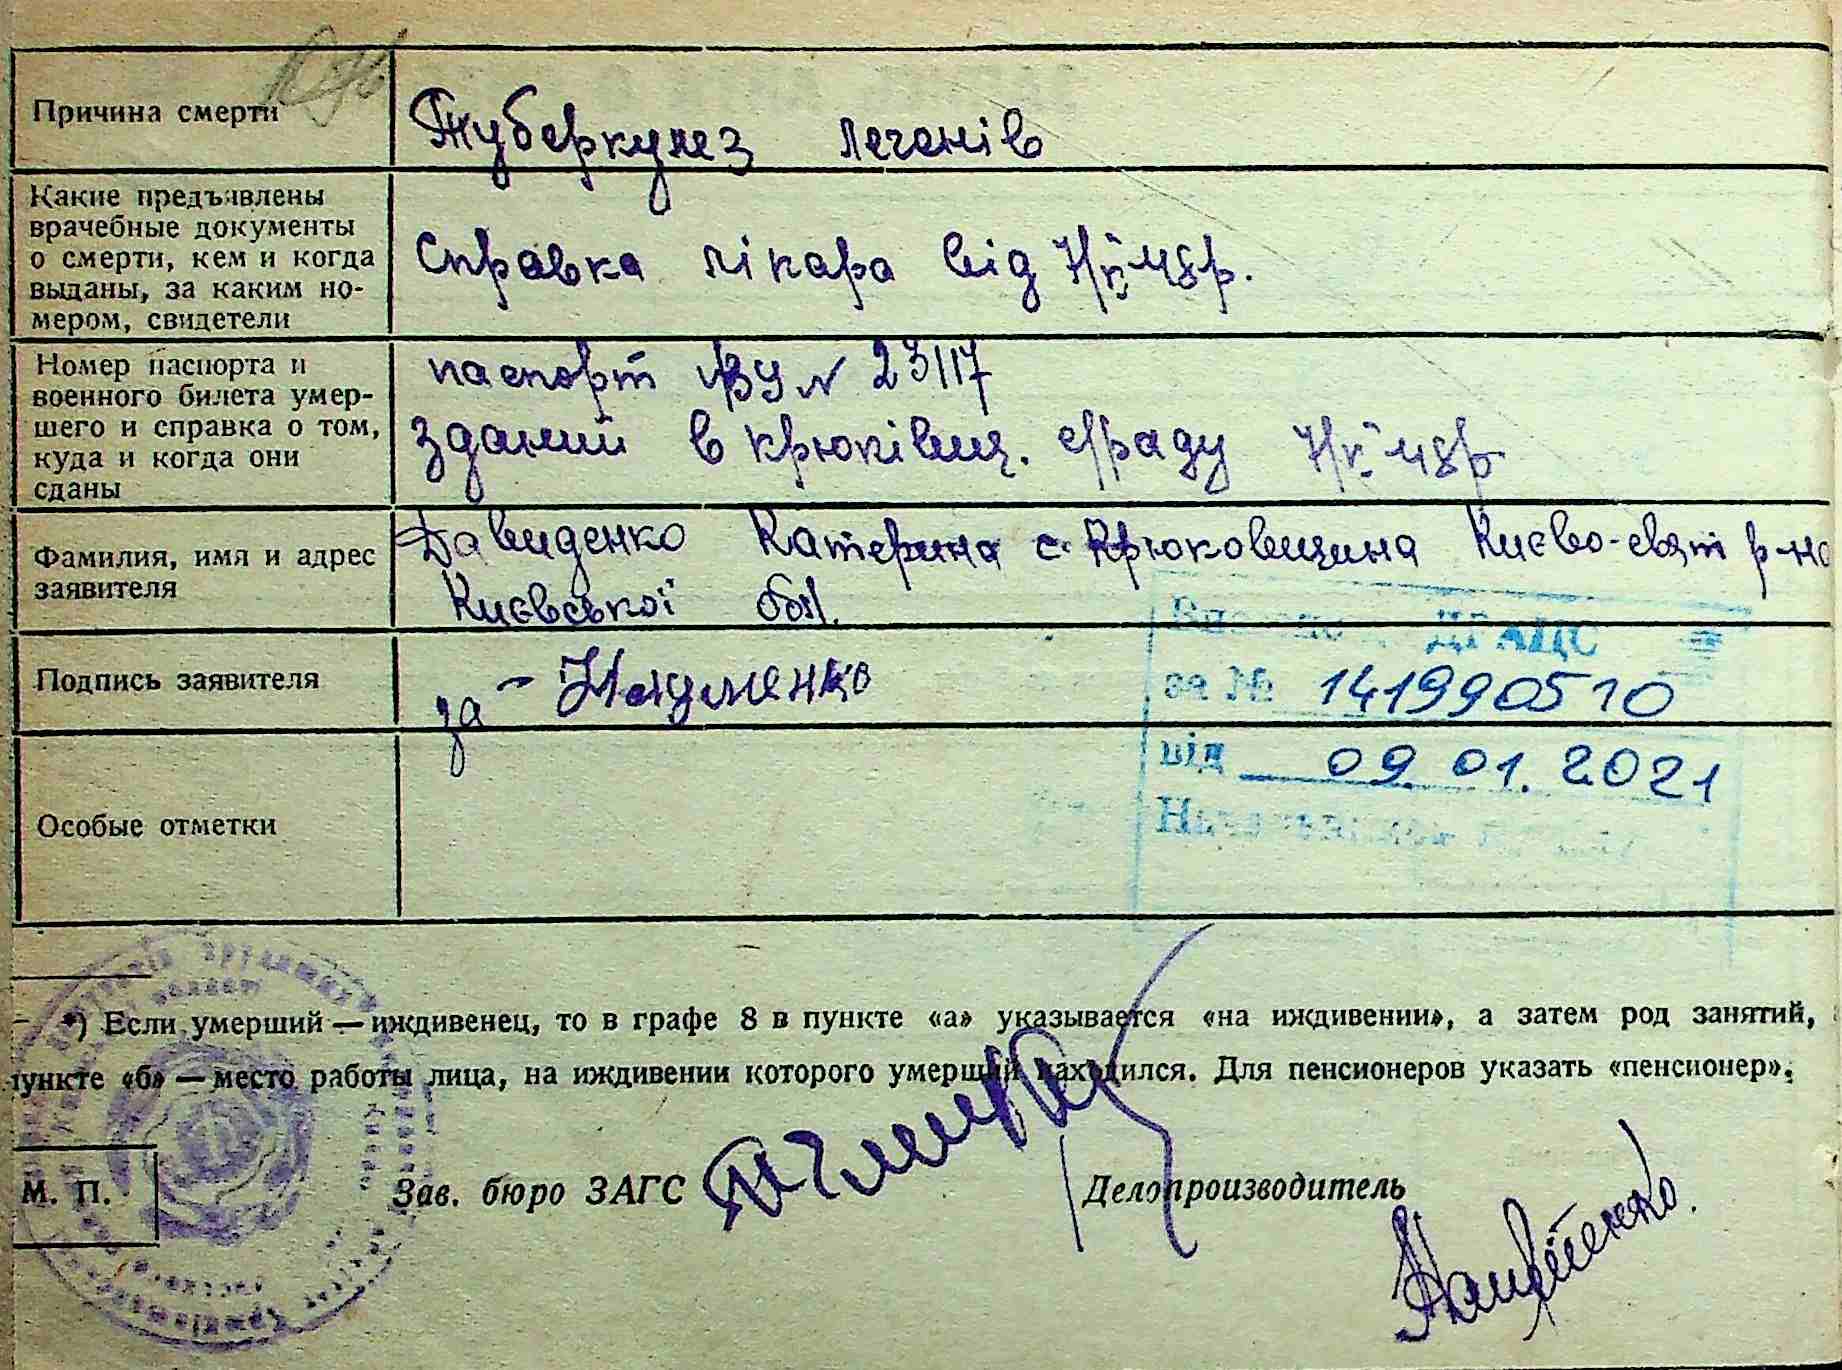 Причина смерти
Туберкулез легенів
Какие предъявлены
врачебные документы
о смерти, кем и когда
выданы, за каким но-
мером, свидетели
Справка лікара від 7/ІІ 48р.
Номер паспорта и
военного билета умер-
шего и справка о том,
куда и когда они
сданы
паспорт ІВУ № 23117
зданий в Крюківщ. с/раду 7/ІІ 48р
Фамилия, имя и адрес
заявителя
Давиденко Катерина с. Крюковщина Києво-свят р-на
Києвської обл.
Подпись заявителя
за - Науменко
ДРАЦС
за № 141990510
від 09.01.2021
Особые отметки
*) Если умерший — иждивенец, то в графе 8 в пункте «а» указывается «на иждивении», а затем род занятий,
пункте «б» — место работы лица, на иждивении которого умерший находился. Для пенсионеров указать «пенсионер».
М. П.
Зав. бюро ЗАГС
Делопроизводитель